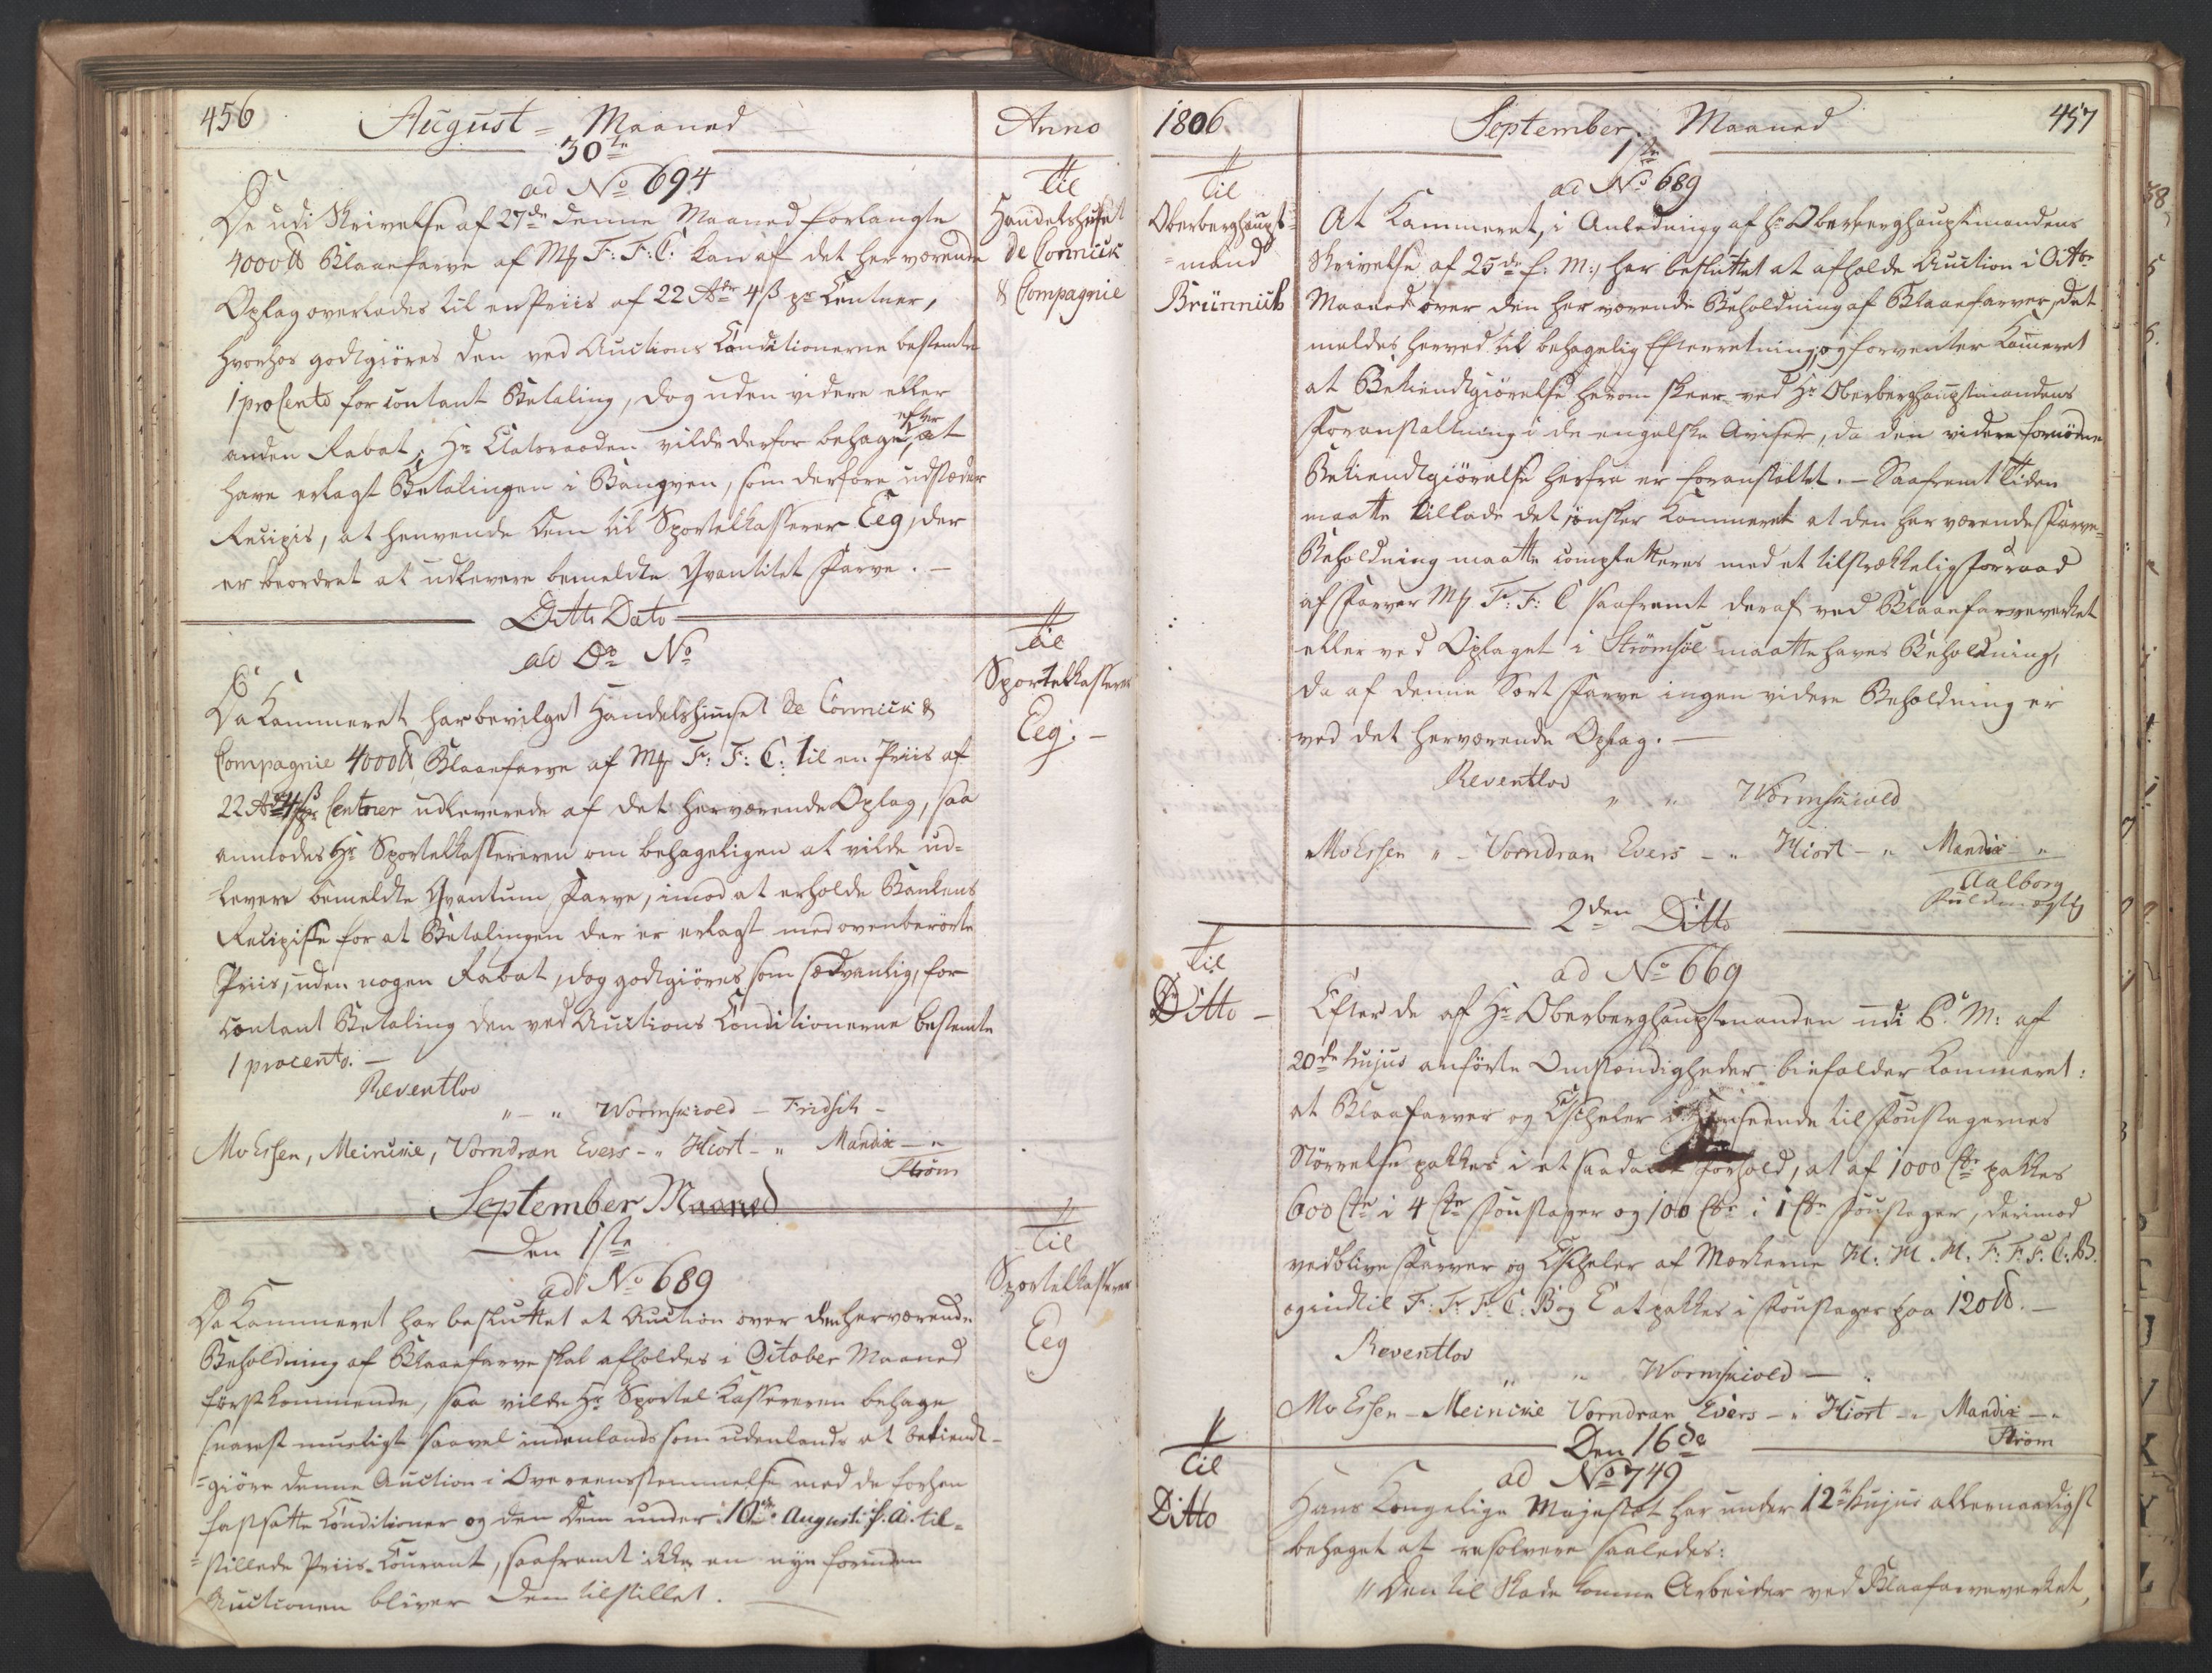 456
August = Maaned
Anno
30te
ad No 694
Til
Handelshuset
de Connick
& Compagnie
De udi Skrivelse af 27de denne Maaned forlangte
4000 ℔ Blaaefarve af Mk F: F: C: kan af det her værende
Oplag overlades til en Priis af 22 Rdr 4 ß pr Centner,
hvorhos godtgiöres den ved Auctions Conditionerne bestemte
1 procento for contant Betaling, dog uden videre eller
anden Rabat; Hr Etatsraaden vilde derfor behage, efter at
have erlagt Betalingen i Banqven, som derfore udstæder
Recipis, at henvende Dem til Sportelkasserer Eeg, der
er beordret at udlevere bemeldte Qvantitet Farve. –
Ditto Dato
ad Do No
Til
Sportelkasserer
Eeg. –
Da Kammeret har bevilget Handelshuuset de Connick &
Compagnie 4000 ℔ Blaaefarve af Mk F: F: C: til en Priis af
22 Rdr 4 ß pr Centner udleverede af det herværende Oplag, saa
anmodes Hr Sportelkassereren om behageligen at vilde ud=
levere bemeldte Qvantum Farve, imod at erholde Bankens
Recipisse for at Betalingen der er erlagt med ovenberörte
Priis, uden nogen Rabat, dog godtgiöres som sædvanlig, for
contant Betaling den ved Auctions Conditionerne bestemte
1 procento. –
Reventlov
" – " Wormskiold – Fridsch –
Mv Essen, Meincke, Vorndran Evers – " Hiort – " Mandix – "
Ström
September Maaned
Den 1ste
ad No 689
Til
Sportelkasserer
Eeg
Da Kammeret har besluttet at Auction over den herværende
Beholdning af Blaaefarve skal afholdes i October Maaned
förstkommende, saa vilde Hr Sportel Kassereren behage
snarest mueligt saavel indenlands som udenlands at bekiendt=
=giöre denne Auction i Overeensstemmelse med de forhen
fastsatte Conditioner og den Dem under 10de Augusti f. A. til=
=stillede Priis-Courant, saafremt ikke en nye forinden
Auctionen bliver Dem tilstillet.
1806.
September Maaned
457
1ste
ad No 689
Til
Oberberghaupt=
=mand
Brünnich
At Kammeret, i Anledning af Hr Oberberghauptmandens
Skrivelse af 25de f: M:, har besluttet at afholde Auction i Octbr
Maaned over den her værende Beholdning af Blaaefarver, det
meldes herved til behagelig Efterretning, og forventer Kameret
at Bekiendtgiörelse herom skeer ved Hr Oberberghauptmandens
Foranstaltning i de engelske Aviser, da den videre fornödne
Bekiendtgiörelse herfra er foranstaltet. – Saafremt Tiden
maatte tillade det, önsker Kammeret at den her værende Farve=
Beholdning maatte completteres med et tilstrækkelig Forraad
af Farver Mk F: F: C saafremt deraf ved Blaaefarveverket
eller ved Oplaget i Strömsöe maatte haves Beholdning,
da af denne Sort Farve ingen videre Beholdning er
ved det herværende Oplag. –
Reventlov
" " Wormskiold
Mv Essen " – Vorndran Evers – " Hiort – " Mandix – "
Aalborg
2den Ditto
ad No 669
Til
Ditto –
Efter de af Hr Oberberghauptmanden udi P. M: af
20de hujus anförte Omstændigheder bifalder Kammeret:
at Blaafarver og Escheler i Henseende til Foustagernes
Störrelse pakkes i et saadant Forhold, at af 1000 Ctr pakkes
600 Ctr i 4 Ctr Foustager og 100 Ctr i 1 Ctr Foustager, derimod
vedblive Farver og Escheler af Mærkerne M. M. M. F: F: F: C: B.
og indtil F: F: F: C: B og E at pakkes i Foustager paa 120 ℔. –
Reventlov
" " Wormskiold – .
Mv Essen – Meincke Vorndran Evers – " Hiort – " Mandix – "
Ström
Den 16de
ad No 749
Til
Ditto
Hans Kongelige Majestæt har under 12te hujus allernaadigst
behaget at resolvere saaledes:
"Den til Skade komne Arbeider ved Blaafarveverket,